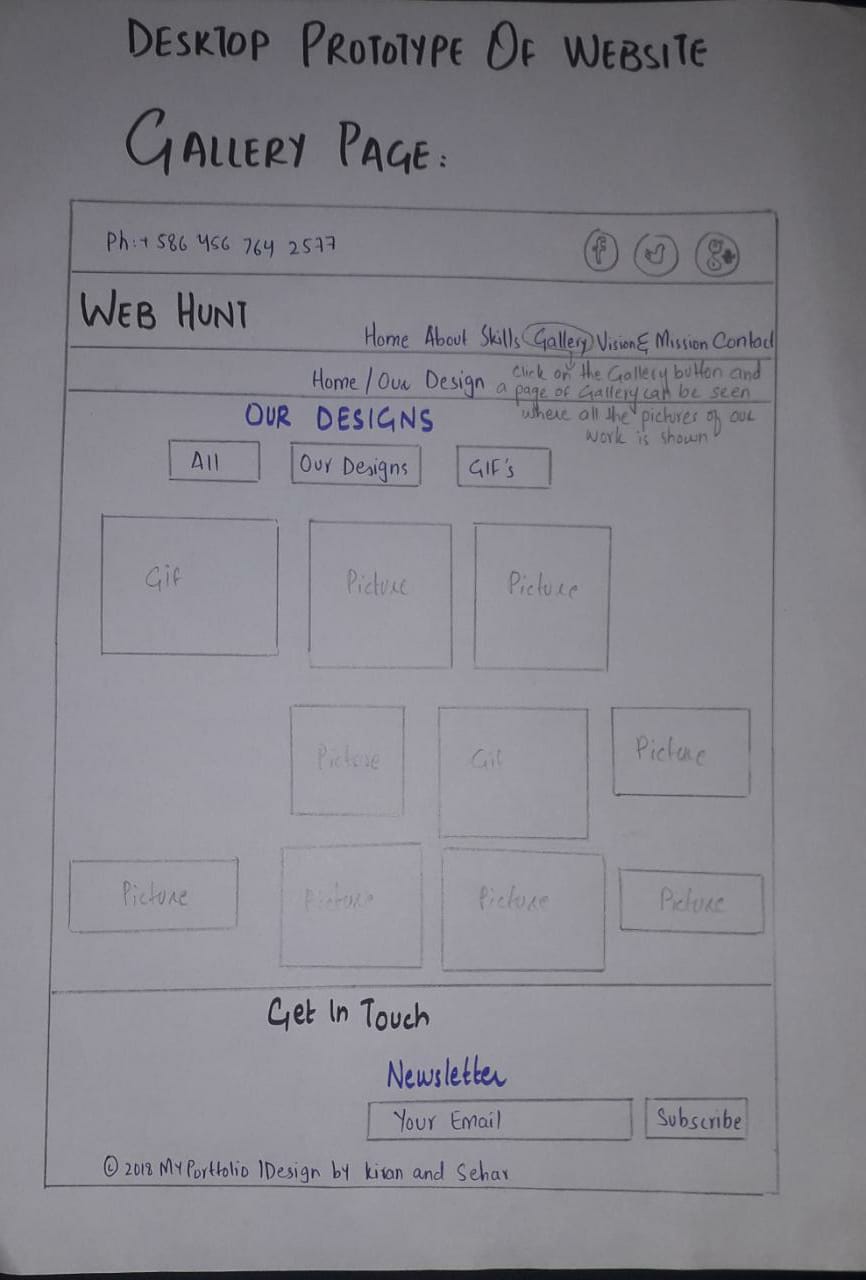 DESKTOP PROTOTYPE OF WEBSITE
GALLERY PAGE:
Ph:+ 586 456 764 2577
f g+
WEB HUNT
Home About Skills Gallery Vision& Mission Contact
Home / Our Design
click on the Gallery button and
a page of Gallery can be seen
where all the pictures of our
work is shown
OUR DESIGNS
All Our Designs GIF's
Gif Picture Picture
Picture Gif Picture
Picture Picture Picture Picture
Get In Touch
Newsletter
Your Email Subscribe
© 2018 MY Portfolio | Design by kiran and Sehar